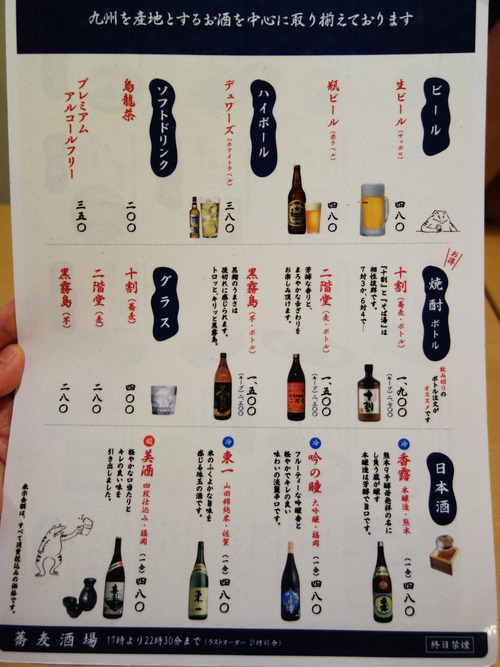 九州を産地とするお酒を中心に取り揃えております
ビール
生ビール（サッポロ）
四八〇
瓶ビール（赤ラベル）
四八〇
ハイボール
デュワーズ（ホワイトラベル）
三八〇
ソフトドリンク
烏龍茶
二〇〇
プレミアム
アルコールフリー
三五〇
お得
焼酎 ボトル
飲み切りの
ボトル注文が
オススメです
十割（蕎麦・ボトル）
『十割』と『そば湯』は
相性抜群です。
7対3か、6対4で…
一、九〇〇
（キープ）二、七〇〇
二階堂（麦・ボトル）
芳醇な香りと、
まろやかな舌ざわりを
お楽しみ頂けます。
一、五〇〇
（キープ）二、五〇〇
黒霧島（芋・ボトル）
黒麹のうまさは
後切れに感じられます。
トロッと、キリッと黒霧島。
一、五〇〇
（キープ）二、五〇〇
グラス
十割（蕎麦）
四〇〇
二階堂（麦）
二八〇
黒霧島（芋）
二八〇
日本酒
冷 香露 本醸造・熊本
熊本9号酵母発祥の名に
し負う蔵が醸す
本醸造は芳醇で旨口です。
（一合）四八〇
冷 吟の瞳 大吟醸・福岡
フルーティーな吟醸香と
軽やかでキレの良い
味わいの淡麗辛口です。
（一合）四八〇
冷 東一 山田錦純米・佐賀
米のふくよかな旨味を
感じる珠玉の酒です。
（一合）四八〇
燗 美酒 四段仕込み・福岡
軽やかな口当たりと
キレの良い味を
引き出しました。
（一合）四八〇
表示金額は、すべて消費税込みの価格です。
蕎麦酒場 17時より22時30分まで（ラストオーダー 21時45分）
終日禁煙